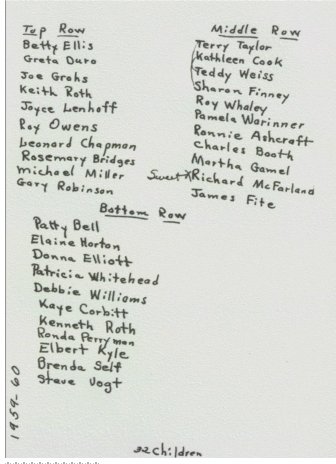 Top Row
Betty Ellis
Greta Duro
Joe Grohs
Keith Roth
Joyce Lenhoff
Roy Owens
Leonard Chapman
Rosemary Bridges
Michael Miller
Gary Robinson
Middle Row
Terry Taylor
Kathleen Cook
Teddy Weiss
Sharon Finney
Roy Whaley
Pamela Warinner
Ronnie Ashcraft
Charles Booth
Martha Gamel
Sweet X Richard McFarland
James Fite
Bottom Row
Patty Bell
Elaine Horton
Donna Elliott
Patricia Whitehead
Debbie Williams
Kaye Corbitt
Kenneth Roth
Ronda Perryman
Elbert Kyle
Brenda Self
Steve Vogt
1959-60
32 Children